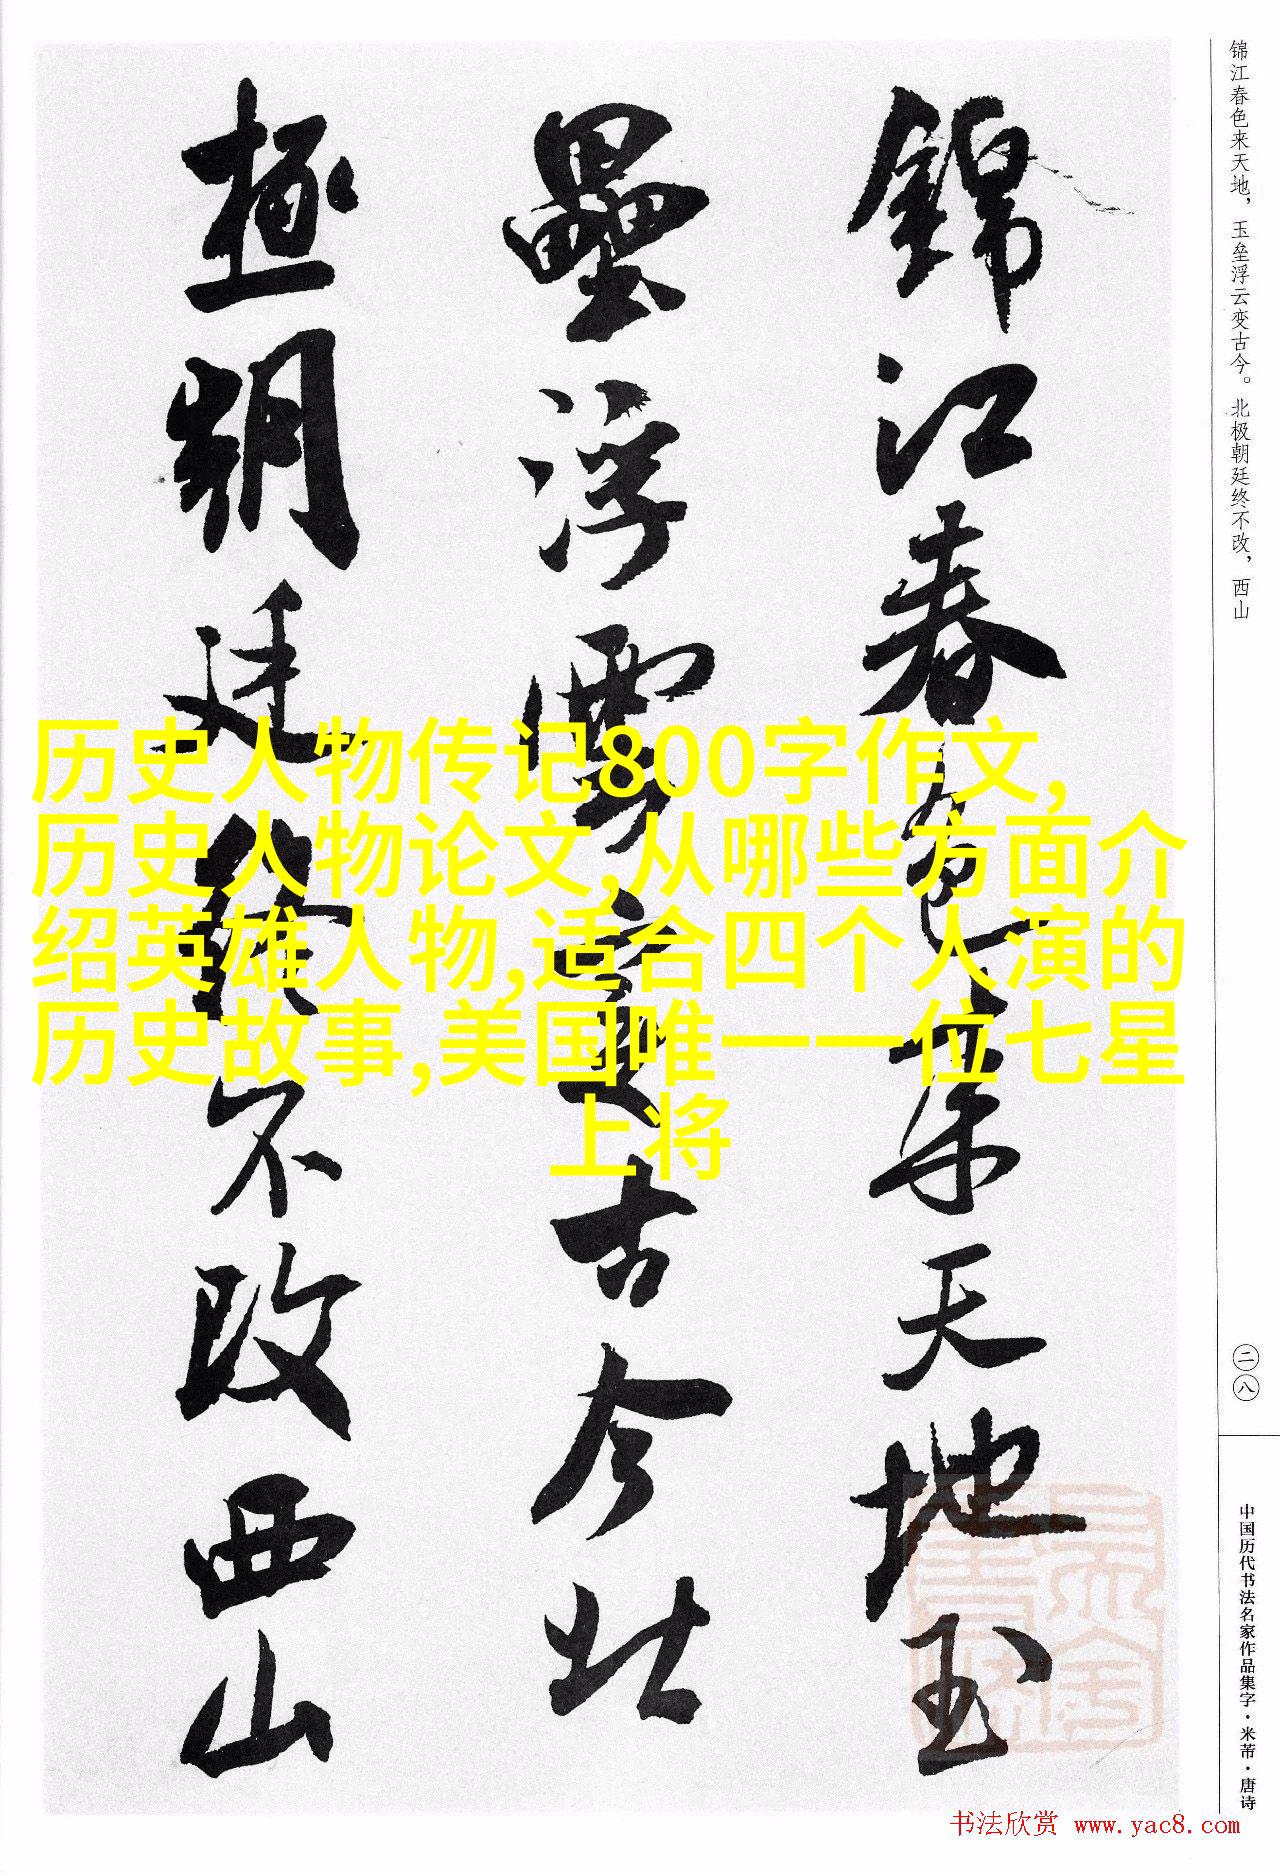 锦江春色来天地，玉垒浮云变古今。北极朝廷终不改，西山
錦江春色来天地玉
壘浮雲變古今北
極朝廷終不改西山
历史人物传记800字作文,
历史人物论文,从哪些方面介
绍英雄人物,适合四个人演的
历史故事,美国唯一一位七星
上将
二八
中国历代书法名家作品集字·米芾·唐诗
书法欣赏 www.yac8.com